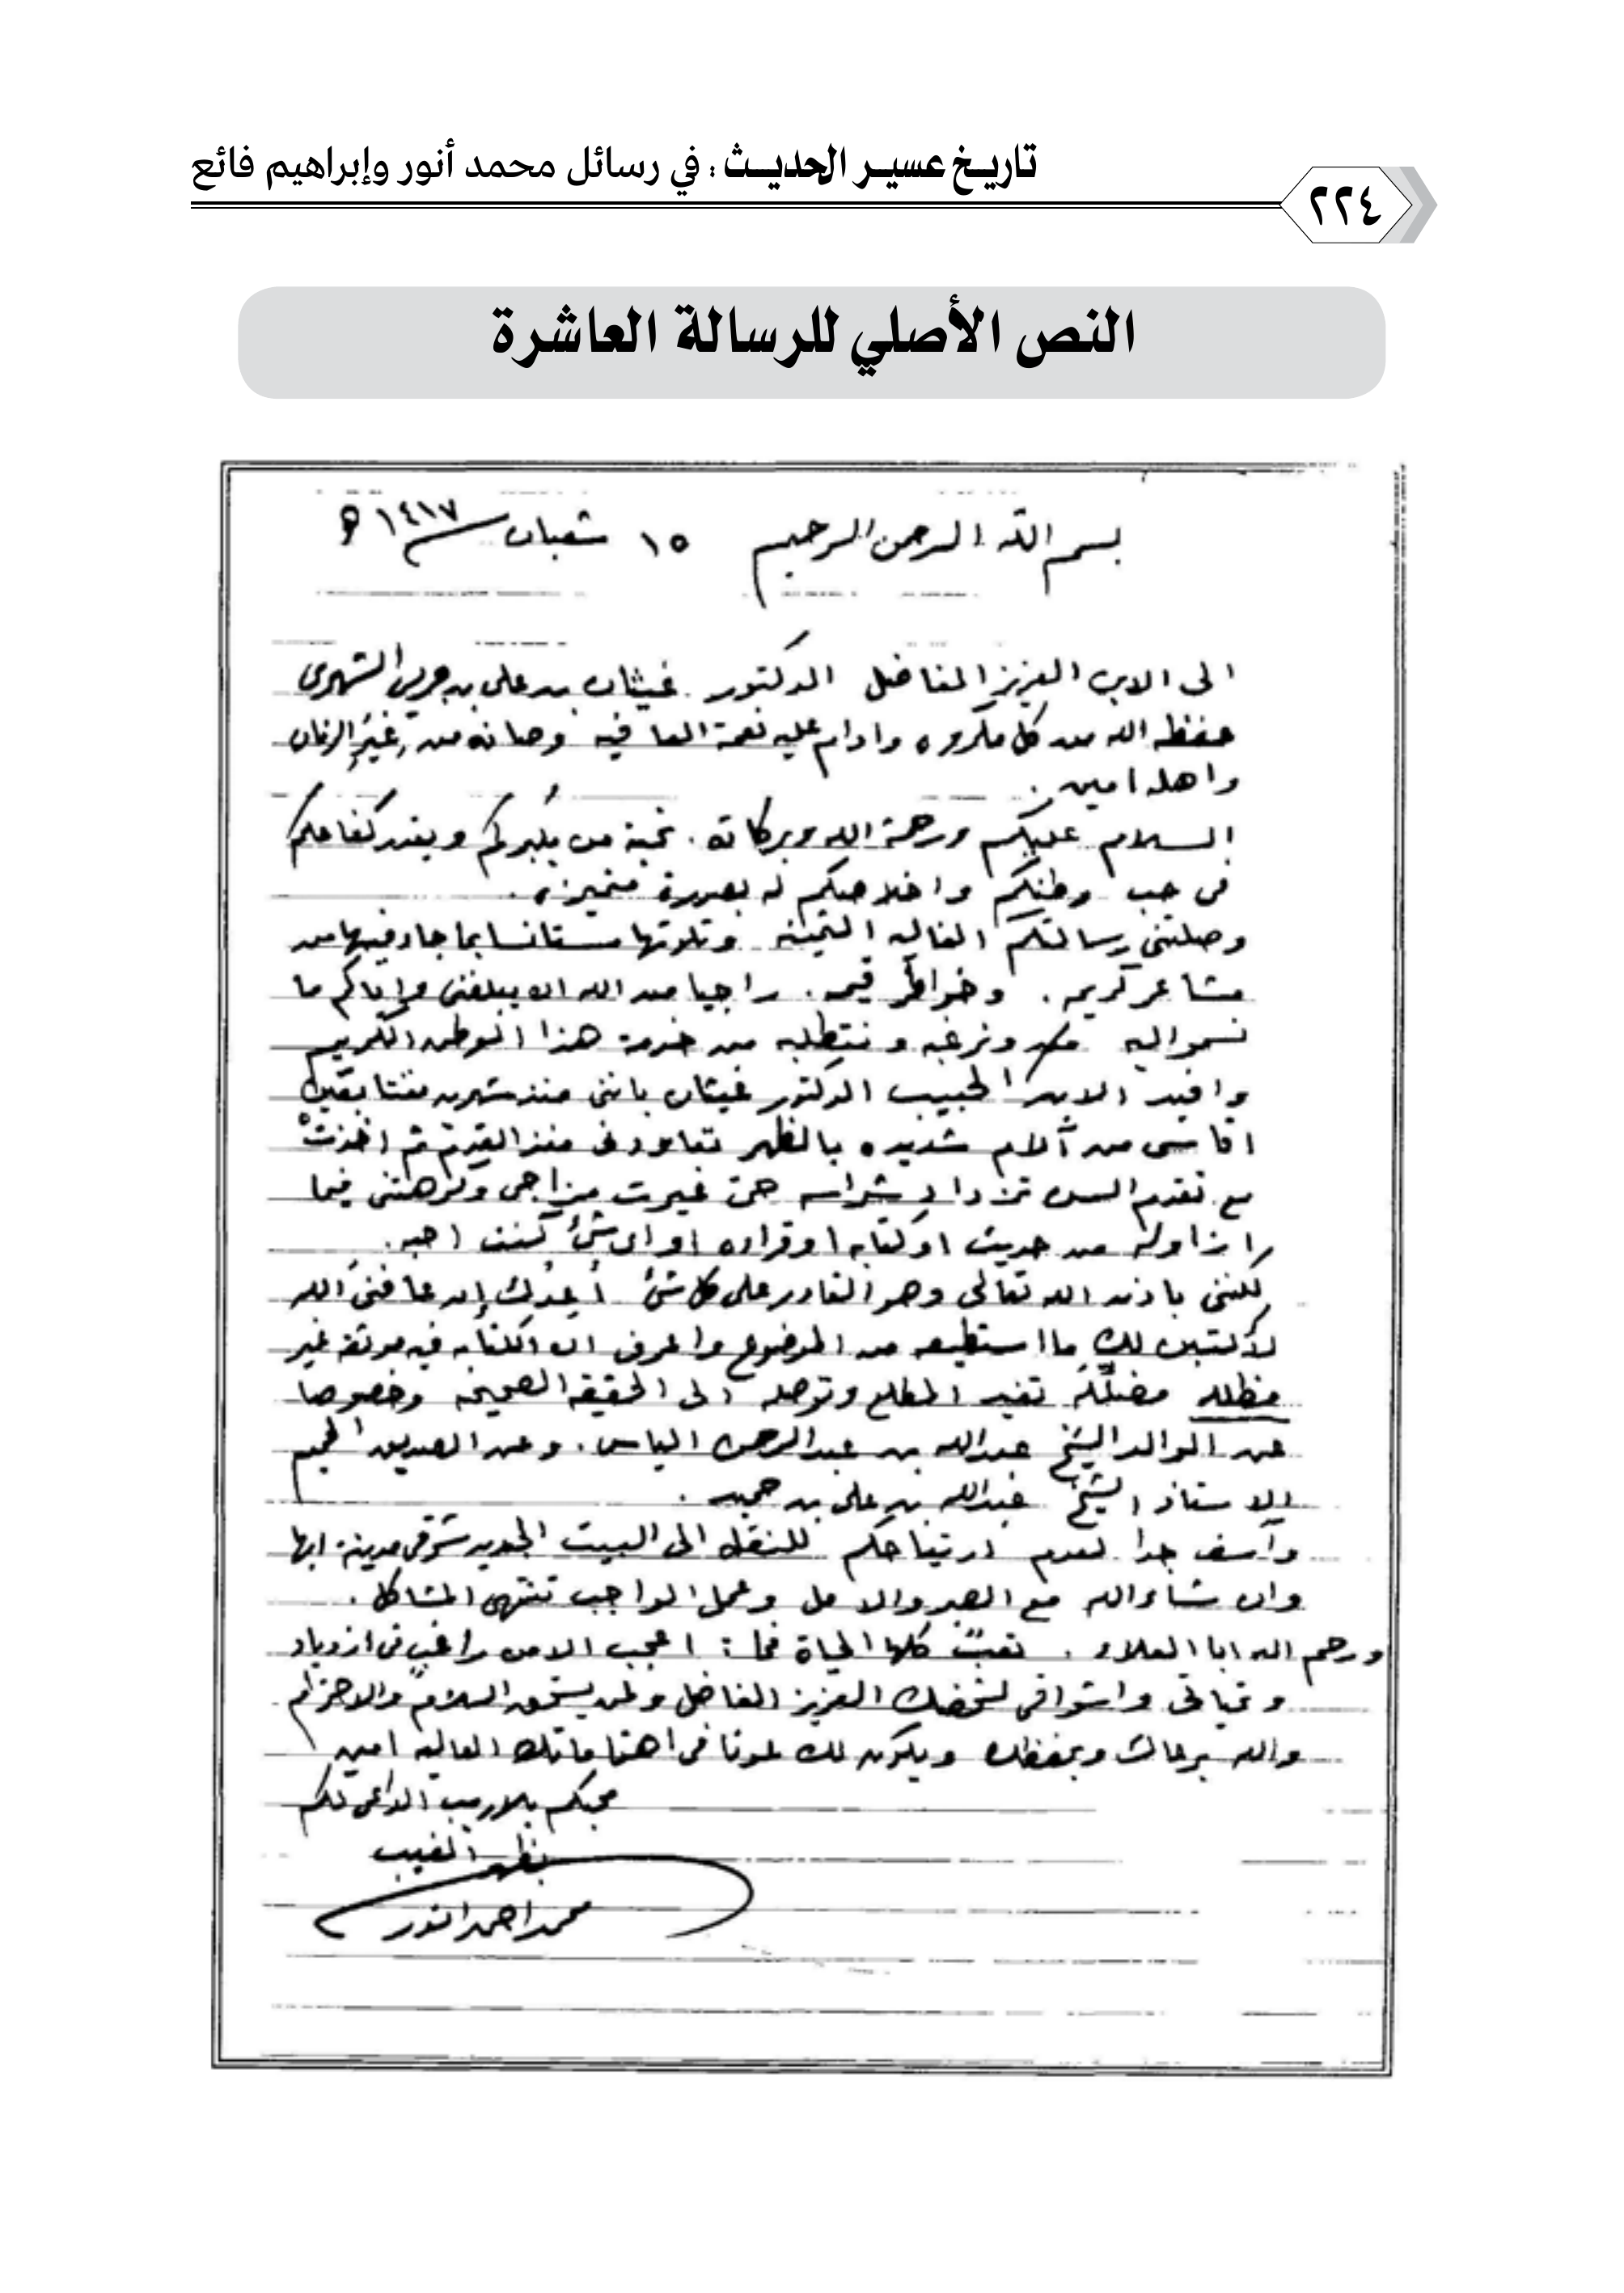 تاريخ عسير الحديث : في رسائل محمد أنور وإبراهيم فائع
٢٢٤
النص الأصلي للرسالة العاشرة
بسم الله الرحمن الرحيم ١٥ شعبان ١٤١٧ هـ
الى الابن العزيز الفاضل الدكتور غيثان بن على بن جريس الشهرى
حفظه الله من كل مكروه وادام عليه نعمة العافيه وصانه من غِيَرِ الزمان
واهله امين .
السلام عليكم ورحمة الله وبركاته . تحية من يُكبركم ويقدر كفاحكم
فى حب وطنكم واخلاصكم له بصورة متميزه .
وصلتنى رسالتكم الغاليه الثمينه وتلوتها مستانسا بما جاء فيها من
مشاعر كريمه . وخواطر قيمه . راجيا من الله ان يبلغنى واياكم ما
نسمو اليه ونرغبه ونتطلبه من خدمة هذا الوطن الكريم
وافيد الابن الحبيب الدكتور غيثان باننى منذ شهرين متتابعين
اقاسى من آلام شديده بالظهر تعاودنى منذ القدم ثم اخذتْ
مع تقدم السن تزداد شراسه حتى غيرت مزاجى وكرهتنى فيما
ازاوله من حديث او كتابه او قراءه او اى شئ كنت احبه .
لكننى باذن الله تعالى وهو القادر على كل شئ أعِدُك إن عافنى الله
لأكتبن لك ما استطيعه من الموضوع واعرف ان الكتابه فيه موثقه غير
مظلله مضلِّلَه تفيد المطلع وتوصله الى الحقيقه الصحيحه وخصوصا
عن الوالد الشيخ عبدالله بن عبدالرحمن الياس . وعن الصديق الحميم
الاستاذ الشيخ عبدالله بن على بن حميد .
وآسف جدا لعدم ارتياحكم للنقل الى البيت الجديد شرقى مدينة ابها
وان شاء الله مع الصبر والامل وعمل الواجب تنتهى المشاكل .
ورحم الله ابا العلاء . تعبٌ كلها الحياة فما : اعجب الا من راغبٍ فى ازدياد
وتحياتى واشواقى لشخصك العزيز الفاضل ولمن يستحق السلام والاحترام
والله يرعاك ويحفظك ويكون لك عونا فى اهتماماتك العاليه امين
محبكم بلا ريب الداعى لكم
بظهر الغيب
محمد احمد انور